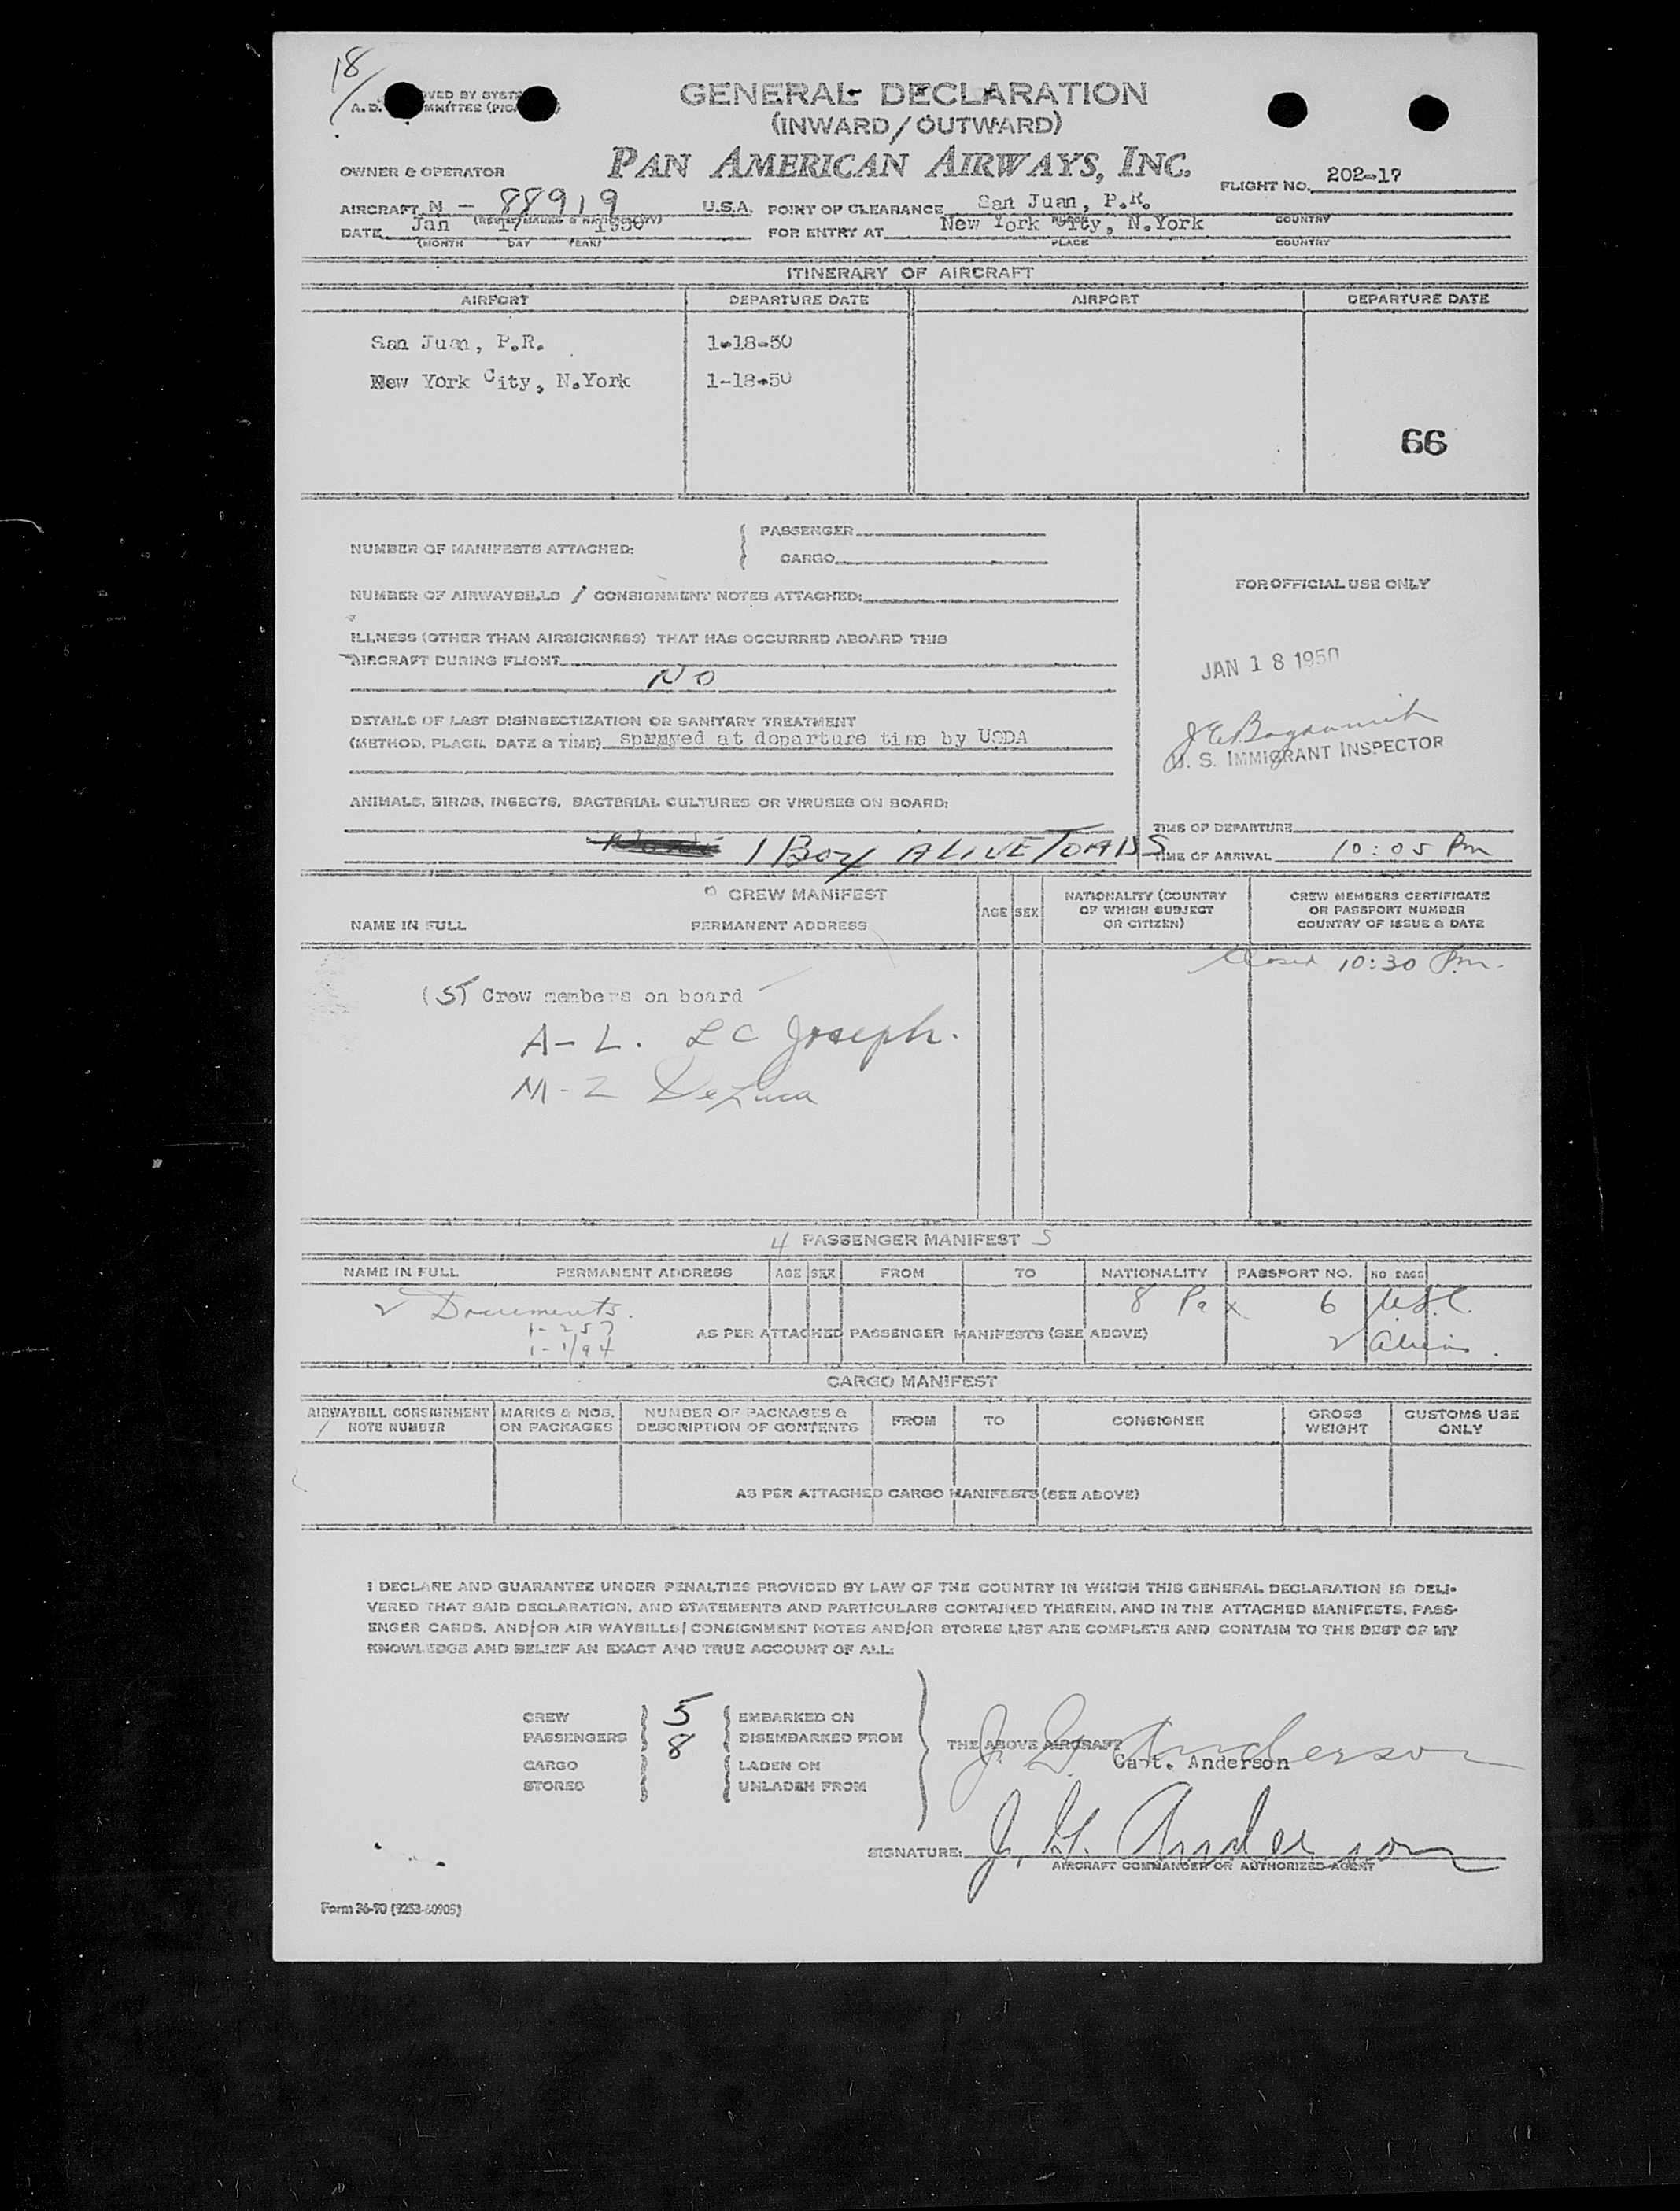 18
GENERAL DECLARATION
(INWARD/OUTWARD)
OWNER & OPERATOR PAN AMERICAN AIRWAYS, INC. FLIGHT NO. 202-17
AIRCRAFT N - 88919 U.S.A. POINT OF CLEARANCE San Juan, P.R.
DATE Jan 17 1950 FOR ENTRY AT New York City, N.York
(MONTH DAY YEAR) PLACE COUNTRY
ITINERARY OF AIRCRAFT
AIRPORT DEPARTURE DATE AIRPORT DEPARTURE DATE
San Juan, P.R. 1-18-50
New York City, N.York 1-18-50
66
NUMBER OF MANIFESTS ATTACHED: { PASSENGER
CARGO
FOR OFFICIAL USE ONLY
NUMBER OF AIRWAYBILLS / CONSIGNMENT NOTES ATTACHED:
ILLNESS (OTHER THAN AIRSICKNESS) THAT HAS OCCURRED ABOARD THIS
AIRCRAFT DURING FLIGHT
NO
JAN 18 1950
U. S. IMMIGRANT INSPECTOR
DETAILS OF LAST DISINSECTIZATION OR SANITARY TREATMENT
(METHOD, PLACE, DATE & TIME) sprayed at departure time by USDA
ANIMALS, BIRDS, INSECTS, BACTERIAL CULTURES OR VIRUSES ON BOARD:
1 Box ALIVE TOADS
TIME OF DEPARTURE
TIME OF ARRIVAL 10:05 Pm
CREW MANIFEST
NAME IN FULL PERMANENT ADDRESS AGE SEX NATIONALITY (COUNTRY OF WHICH SUBJECT OR CITIZEN) CREW MEMBERS CERTIFICATE OR PASSPORT NUMBER COUNTRY OF ISSUE & DATE
Closed 10:30 Pm.
(5) Crew members on board
A-L. LC Joseph.
M-Z DeLuca
4 PASSENGER MANIFEST 5
NAME IN FULL PERMANENT ADDRESS AGE SEX FROM TO NATIONALITY PASSPORT NO. NO BAGS
2 Documents. 8 Pax 6 USC.
1-257
AS PER ATTACHED PASSENGER MANIFESTS (SEE ABOVE) 2 Aliens.
1-1/94
CARGO MANIFEST
AIRWAYBILL CONSIGNMENT / NOTE NUMBER MARKS & NOS. ON PACKAGES NUMBER OF PACKAGES & DESCRIPTION OF CONTENTS FROM TO CONSIGNEE GROSS WEIGHT CUSTOMS USE ONLY
AS PER ATTACHED CARGO MANIFESTS (SEE ABOVE)
I DECLARE AND GUARANTEE UNDER PENALTIES PROVIDED BY LAW OF THE COUNTRY IN WHICH THIS GENERAL DECLARATION IS DELI-
VERED THAT SAID DECLARATION, AND STATEMENTS AND PARTICULARS CONTAINED THEREIN, AND IN THE ATTACHED MANIFESTS, PASS-
ENGER CARDS, AND/OR AIR WAYBILLS/CONSIGNMENT NOTES AND/OR STORES LIST ARE COMPLETE AND CONTAIN TO THE BEST OF MY
KNOWLEDGE AND BELIEF AN EXACT AND TRUE ACCOUNT OF ALL:
CREW 5 EMBARKED ON
PASSENGERS 8 DISEMBARKED FROM
THE ABOVE AIRCRAFT
CARGO LADEN ON
Capt. Anderson
STORES UNLADEN FROM
SIGNATURE: J. H. Anderson
AIRCRAFT COMMANDER OR AUTHORIZED AGENT
Form 36-90 (9253-60905)